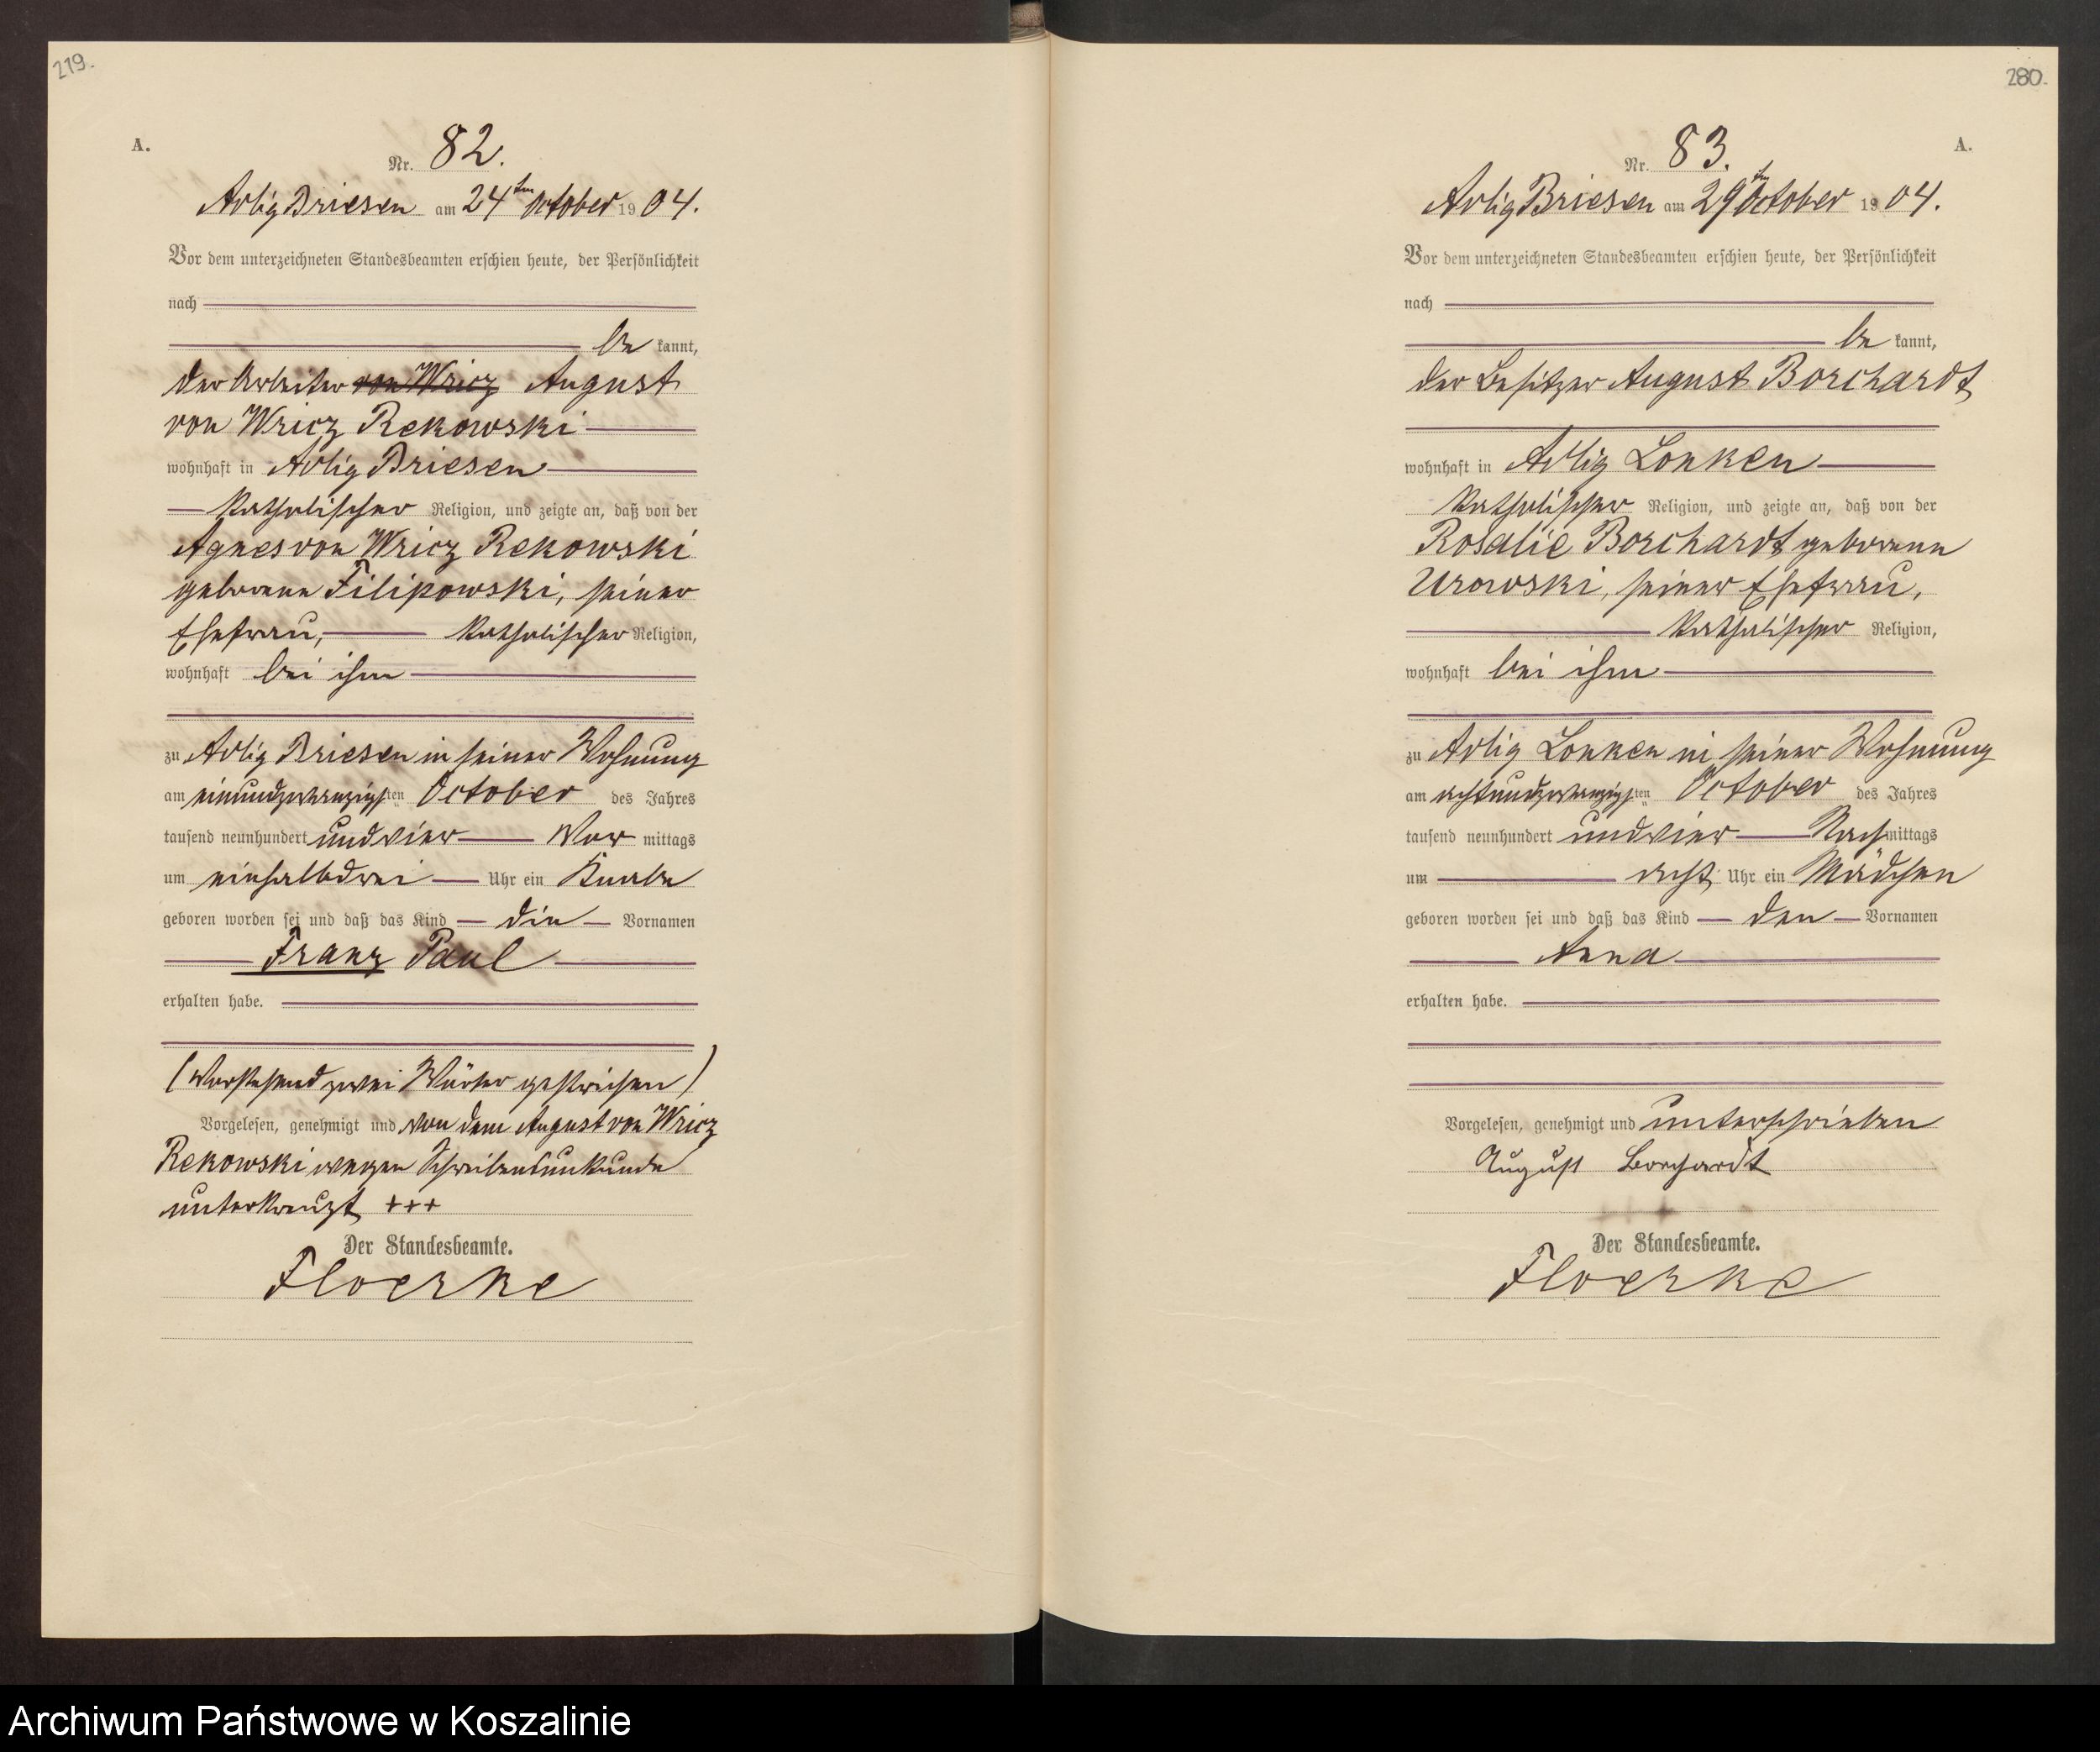 279.
A.
Nr. 82.
Adlig Briesen am 24ten October 1904.
Vor dem unterzeichneten Standesbeamten erschien heute, der Persönlichkeit
nach
be kannt,
der Arbeiter von Wricz August
von Wricz Rekowski
wohnhaft in Adlig Briesen
katholischer Religion, und zeigte an, daß von der
Agnes von Wricz Rekowski
geborene Filipowski, seiner
Ehefrau, katholischer Religion,
wohnhaft bei ihm
zu Adlig Briesen in seiner Wohnung
am einundzwanzigsten October des Jahres
tausend neunhundert und vier Vor mittags
um einhalbdrei Uhr ein Knabe
geboren worden sei und daß das Kind die Vornamen
Franz Paul
erhalten habe.
(Vorstehend zwei Wörter gestrichen)
Vorgelesen, genehmigt und von dem August von Wricz
Rekowski wegen Schreibensunkunde
unterkreuzt +++
Der Standesbeamte.
Floerke
280.
A.
Nr. 83.
Adlig Briesen am 29ten October 1904.
Vor dem unterzeichneten Standesbeamten erschien heute, der Persönlichkeit
nach
be kannt,
der Besitzer August Borchardt
wohnhaft in Adlig Lonken
katholischer Religion, und zeigte an, daß von der
Rosalie Borchardt geborene
Urowski, seiner Ehefrau,
katholischer Religion,
wohnhaft bei ihm
zu Adlig Lonken in seiner Wohnung
am achtundzwanzigsten October des Jahres
tausend neunhundert und vier Nachmittags
um acht Uhr ein Mädchen
geboren worden sei und daß das Kind den Vornamen
Anna
erhalten habe.
Vorgelesen, genehmigt und unterschrieben
August Borchardt
Der Standesbeamte.
Floerke
Archiwum Państwowe w Koszalinie